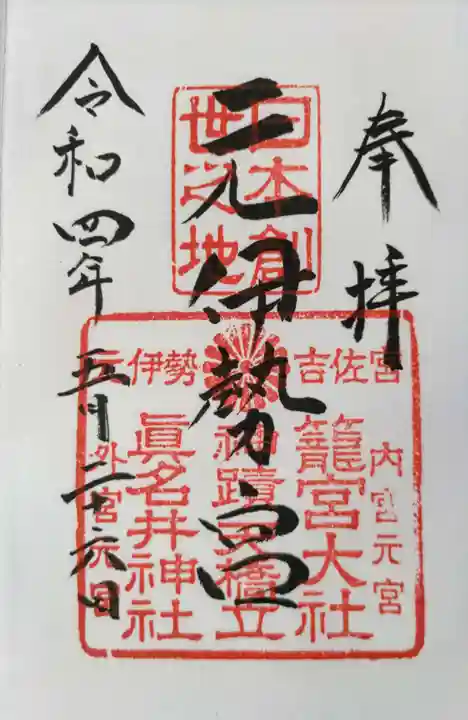 奉拝
日本創
世之地
元伊勢宮
吉佐宮
元伊勢
内宮元宮
籠宮大社
神蹟天橋立
眞名井神社
外宮元宮
令和四年五月二十六日